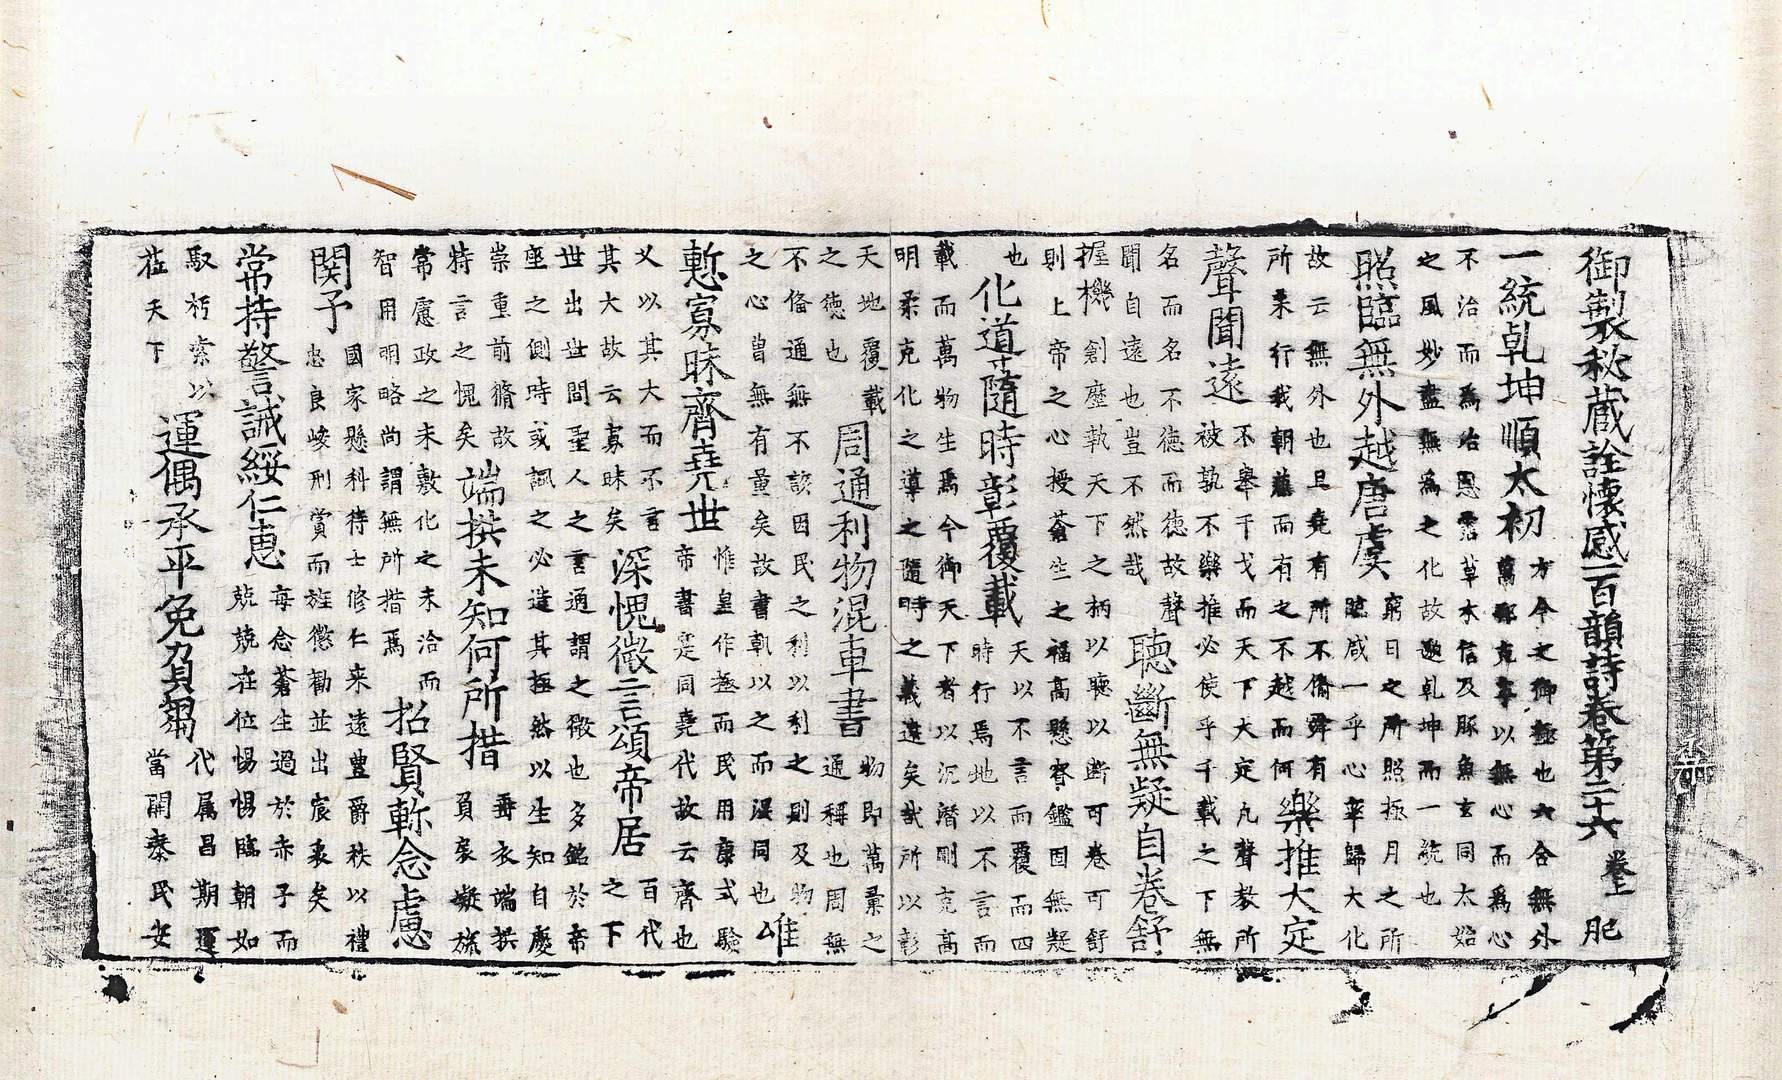 御製秘蔵詮懷感一百韻詩卷第二十六 卷上 肥
一統乹坤順太初 方今之御極也六合無外
萬邦克寧以無心而爲心
不治而爲治恩霑草木信及豚魚玄同太始
之風妙盡無爲之化故邀乹坤而一統也
照臨無外越唐虞 窮日之所照極月之所
臨咸一乎心率歸大化
故云無外也且堯有所不僃舜有
所未行我朝兼而有之不越而何 樂推大定
聲聞遠 不舉干戈而天下大定凡聲教所
被孰不樂推必使乎千載之下無
名而名不德而德故聲
聞自遠也豈不然哉 聽斷無疑自卷舒
握機創歷執天下之柄以聽以斷可卷可舒
則上帝之心授蒼生之福高懸睿鑑固無疑
也
化道隨時彰覆載 天以不言而覆而四
時行焉地以不言而
載而萬物生焉今御天下者以沉潛剛克高
明柔克化之導之隨時之義遠矣哉所以彰
天地覆載
之德也 周通利物混車書 物即萬彙之
通稱也周無
不俻通無不該因民之利以利之則及物
之心曽無有量矣故書軌以之而混同也 雖
慙寡昧齊堯世 惟皇作極而民用康式驗
帝書寔同堯代故云齊也
乂以其大而不言
其大故云寡昧矣 深愧微言頌帝居 百代
之下
世出世間聖人之言通謂之微也多銘於帝
座之側時或諷之必造其極然以生知自慶
崇重前脩故
特言之愧矣 端拱未知何所措 垂衣端拱
負扆凝旒
常慮政之未敷化之未洽而
智用明略尚謂無所措焉 招賢軫念慮
関予 國家懸科待士修仁来遠豊爵秩以禮
忠良峻刑賞而旌懲勸並出宸衷矣
常持警誡綏仁惠 每念蒼生過於赤子而
兢兢在位惕惕臨朝如
馭朽索以
莅天下 運偶承平免負芻 代属昌期運
當開泰民安